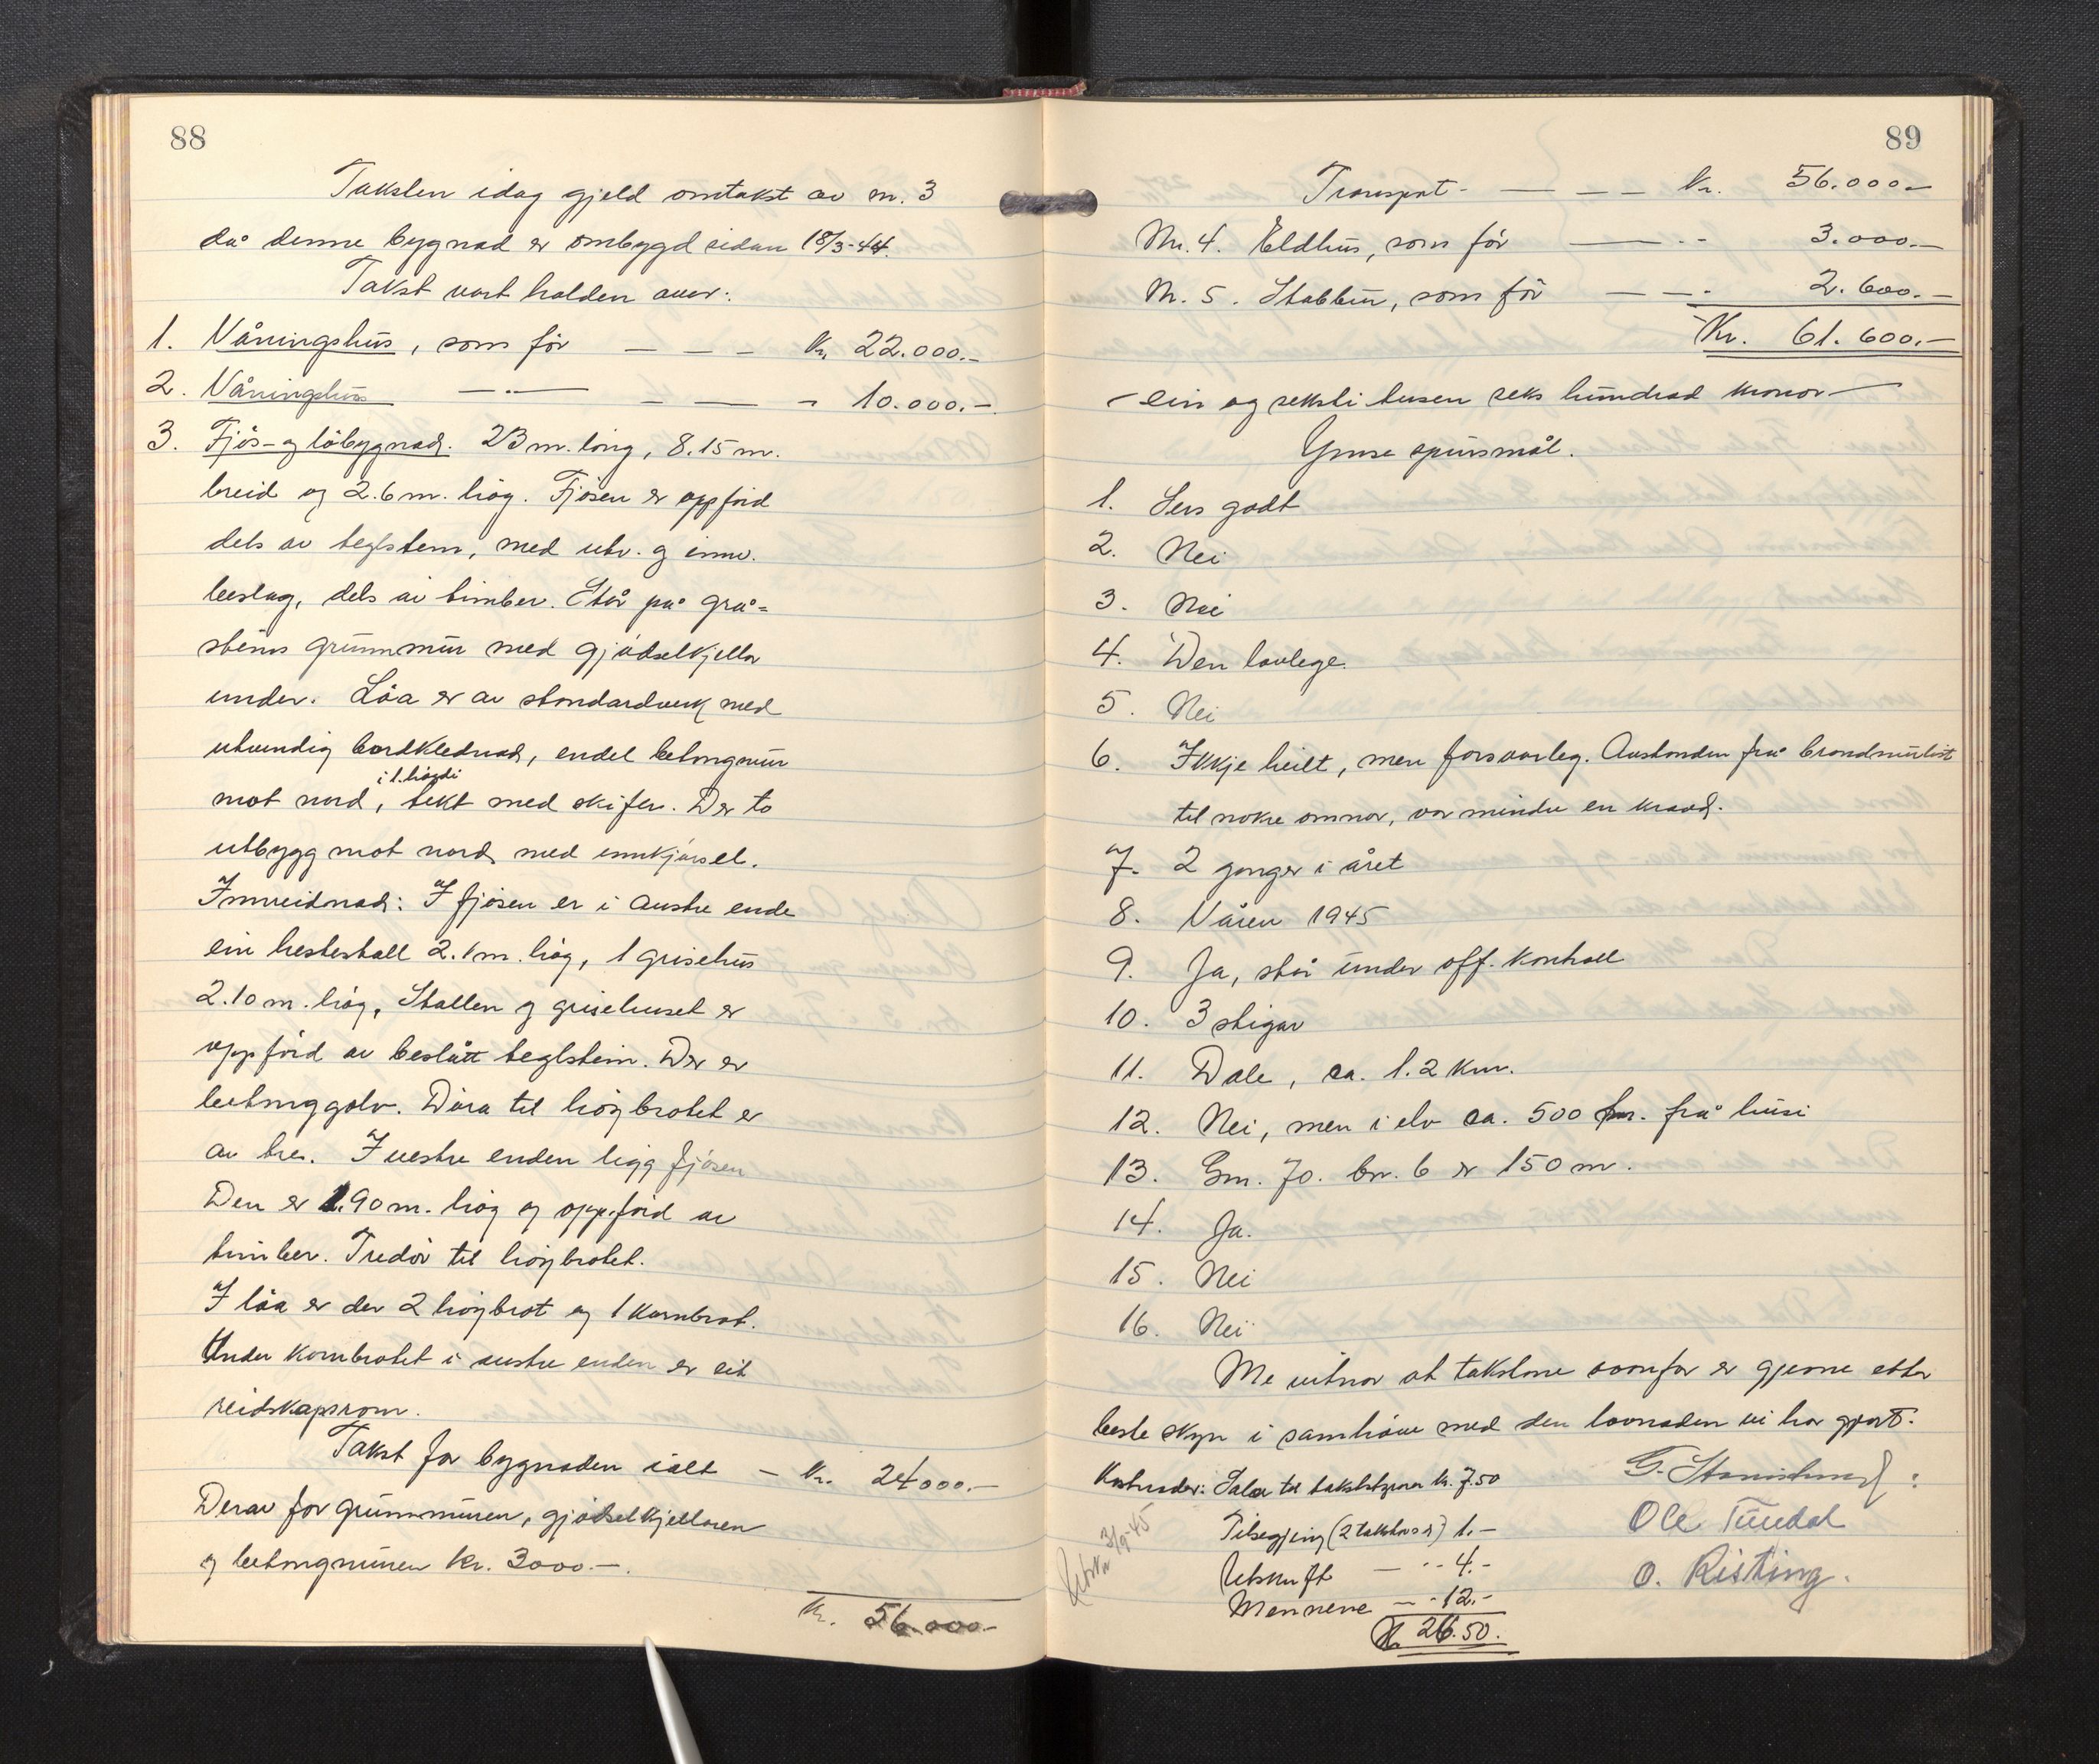 88
Taksten idag gjeld omtakst av nr. 3
då denne bygnad er ombygd sidan 18/3-44.
Takst vart halden over:
1. Våningshus, som för — — — Kr. 22.000.-
2. Våningshus —·— — — - 10.000.-
3. Fjös- og löbygnad. 23 m. lang, 8.15 m.
breid og 2.6 m. hög. Fjösen er oppförd
dels av teglstein, med utv. og innv.
beslag, dels av timber. Står på grå-
steins grunnmur med gjödselkjellar
under. Löa er av standardverk med
utvendig bordklednad, endel betongmur
i 1. högdi
mot nord, tekt med skifer. Der to
utbygg mot nord med innkjörsel.
Innreidnad: I fjösen er i austre ende
ein hestestall 2.1 m. hög, 1 grisehus
2.10 m. hög, Stallen og grisehuset er
oppförd av beslått teglstein. Der er
betonggolv. Döra til höybrotet er
av tre. I vestre enden ligg fjösen
Den er 1.90 m. hög og oppförd av
timber. Tredör til höybrotet.
I löa er der 2 höybrot og 1 kornbrot.
Under kornbrotet i austre enden er eit
reidskapsrom.
Takst for bygnaden ialt — Kr. 24000.-
Derav for grunnmuren, gjödselkjellaren
og betongmuren kr. 3000.-
Kr. 56.000.-
89
Transport - — — — Kr. 56.000.-
Nr. 4. Eldhus, som för — - - 3.000.-
Nr. 5. Stabbur, som för — — - 2.600.-
Kr. 61.600.-
- ein og seksti tusen seks hundrad kronor -
Ymse spursmål.
1. Sers godt
2. Nei
3. Nei
4. Den lovlege.
5. Nei
6. Ikkje heilt, men forsvarleg. Avstanden frå brandmurlist
til nokre omnar, var mindre en kravd.
7. 2 gonger i året
8. Våren 1945
9. Ja, står under off. kontroll
10. 3 stigar
11. Dale, ca. 1.2 km.
12. Nei, men i elv ca. 500 m. frå husi
13. Gnr. 70. bnr. 6 er 150 m.
14. Ja.
15. Nei
16. Nei
Me vitnar at takstane ovanfor er gjorne etter
beste skyn i samhöve med den lovnaden vi har gjort.
Kostnader: Salær til takststyrar kr. 7.50
Tilsegjing (2 takstmenn) 1.-
Utskrift — - - 4.-
Mennene — - 12.-
Kr. 26.50.
3/9-45
Ole Tundal
O. Risting.